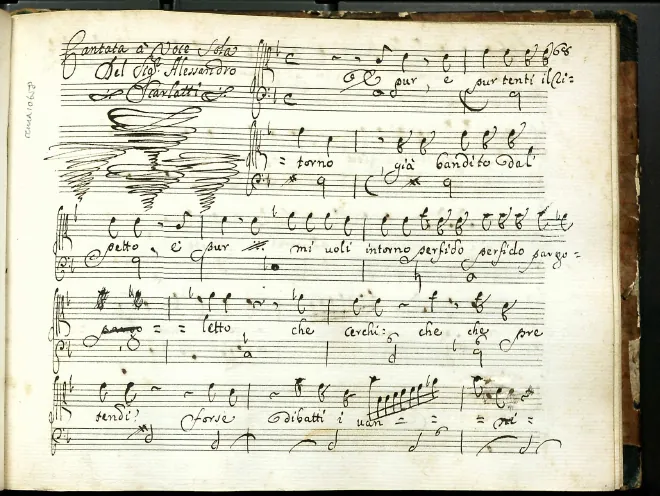 Cantata à Voce Sola
Del Sig.r Alessandro
Scarlatti
68
E pur, e pur tenti il Ri=
= torno già bandito dal
petto, e pur mi voli intorno perfido perfido pargo=
= = letto che cerchi: che che pre
tendi? forse dibatti i van = = = ni =